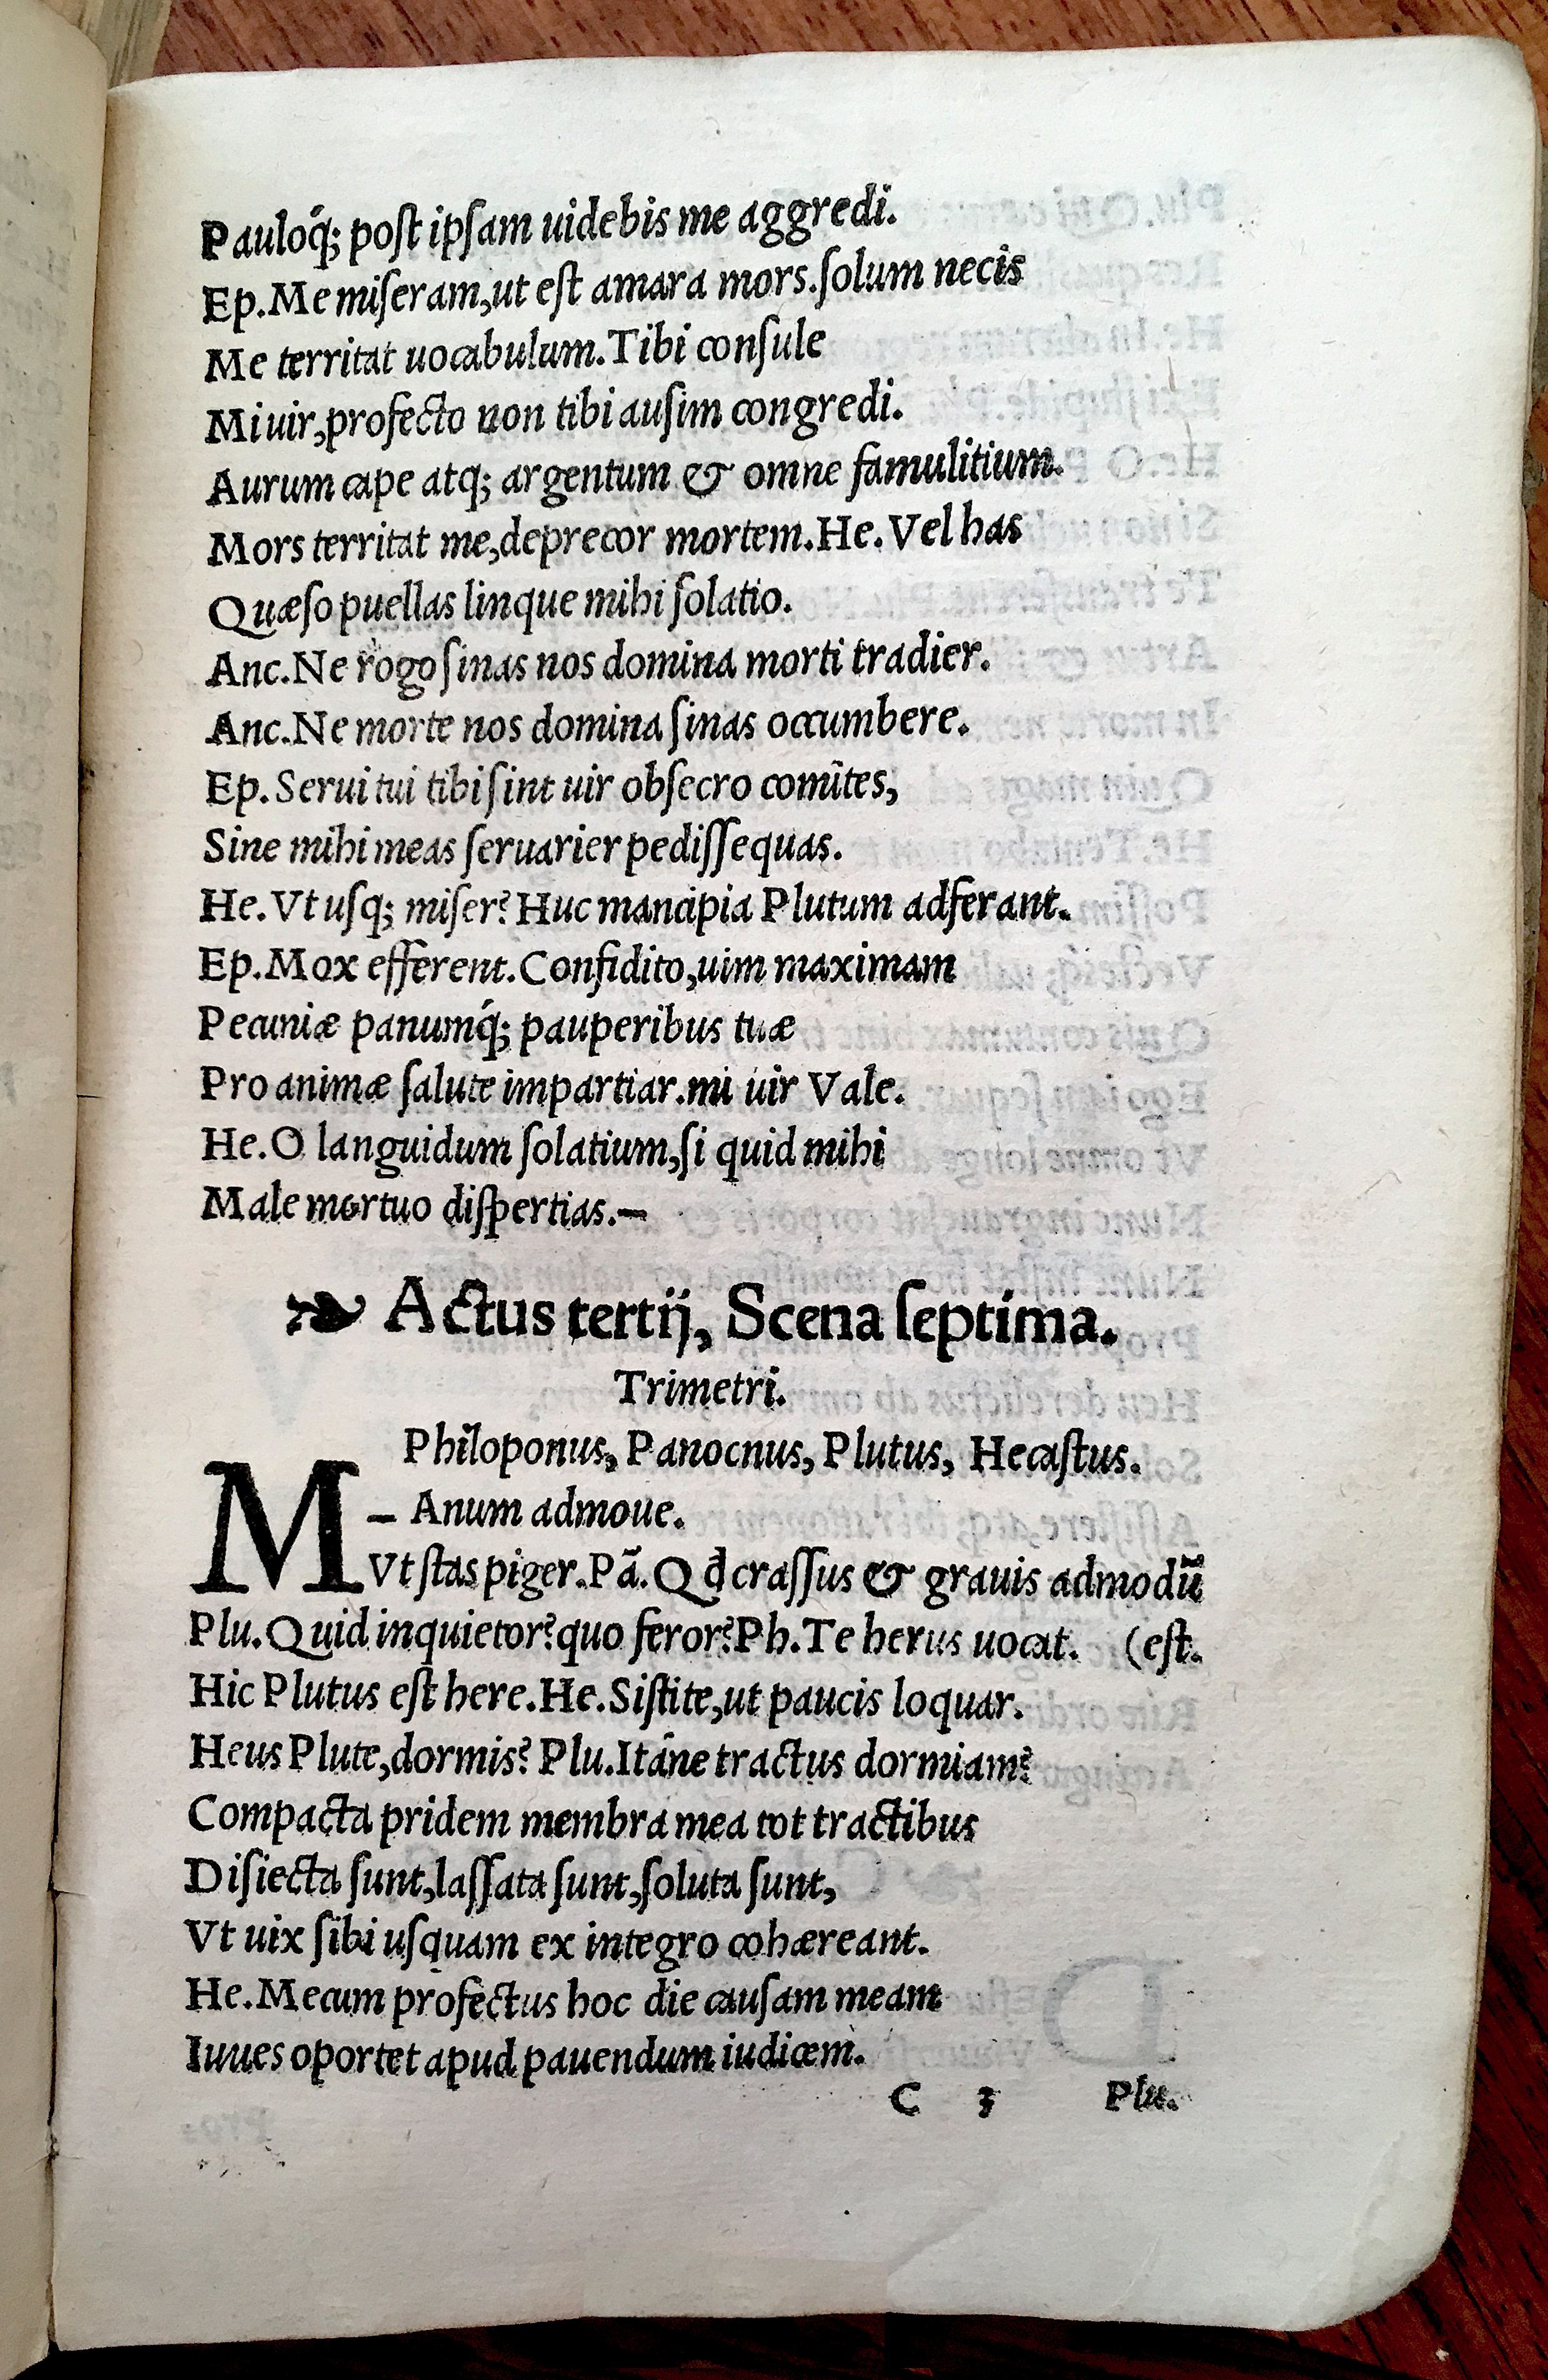 Pauloq́; poſt ipſam uidebis me aggredi.
Ep. Me miſeram, ut eſt amara mors. ſolum necis
Me territat uocabulum. Tibi conſule
Mi uir, profecto non tibi auſim congredi.
Aurum cape atq; argentum & omne famulitium.
Mors territat me, deprecor mortem. He. Vel has
Quæſo puellas linque mihi ſolatio.
Anc. Ne rogo ſinas nos domina morti tradier.
Anc. Ne morte nos domina ſinas occumbere.
Ep. Serui tui tibi ſint uir obſecro comites,
Sine mihi meas ſeruarier pediſſequas.
He. Vt uſq; miſer? Huc mancipia Plutum adferant.
Ep. Mox efferent. Confidito, uim maximam
Pecuniæ panumq́; pauperibus tuæ
Pro animæ ſalute impartiar. mi uir Vale.
He. O languidum ſolatium, ſi quid mihi
Male mortuo diſpertias.—
❧ Actus tertij, Scena ſeptima.
Trimetri.
Philoponus, Panocnus, Plutus, Hecaſtus.
M– Anum admoue.
Vt ſtas piger. Pã. Qd craſſus & grauis admodũ
Plu. Quid inquietor? quo feror? Ph. Te herus uocat. (eſt.
Hic Plutus eſt here. He. Siſtite, ut paucis loquar.
Heus Plute, dormis? Plu. Itáne tractus dormiam?
Compacta pridem membra mea tot tractibus
Diſiecta ſunt, laſſata ſunt, ſoluta ſunt,
Vt uix ſibi uſquam ex integro cohæreant.
He. Mecum profectus hoc die cauſam meam
Iuues oportet apud pauendum iudicem.
C 3 Plu.